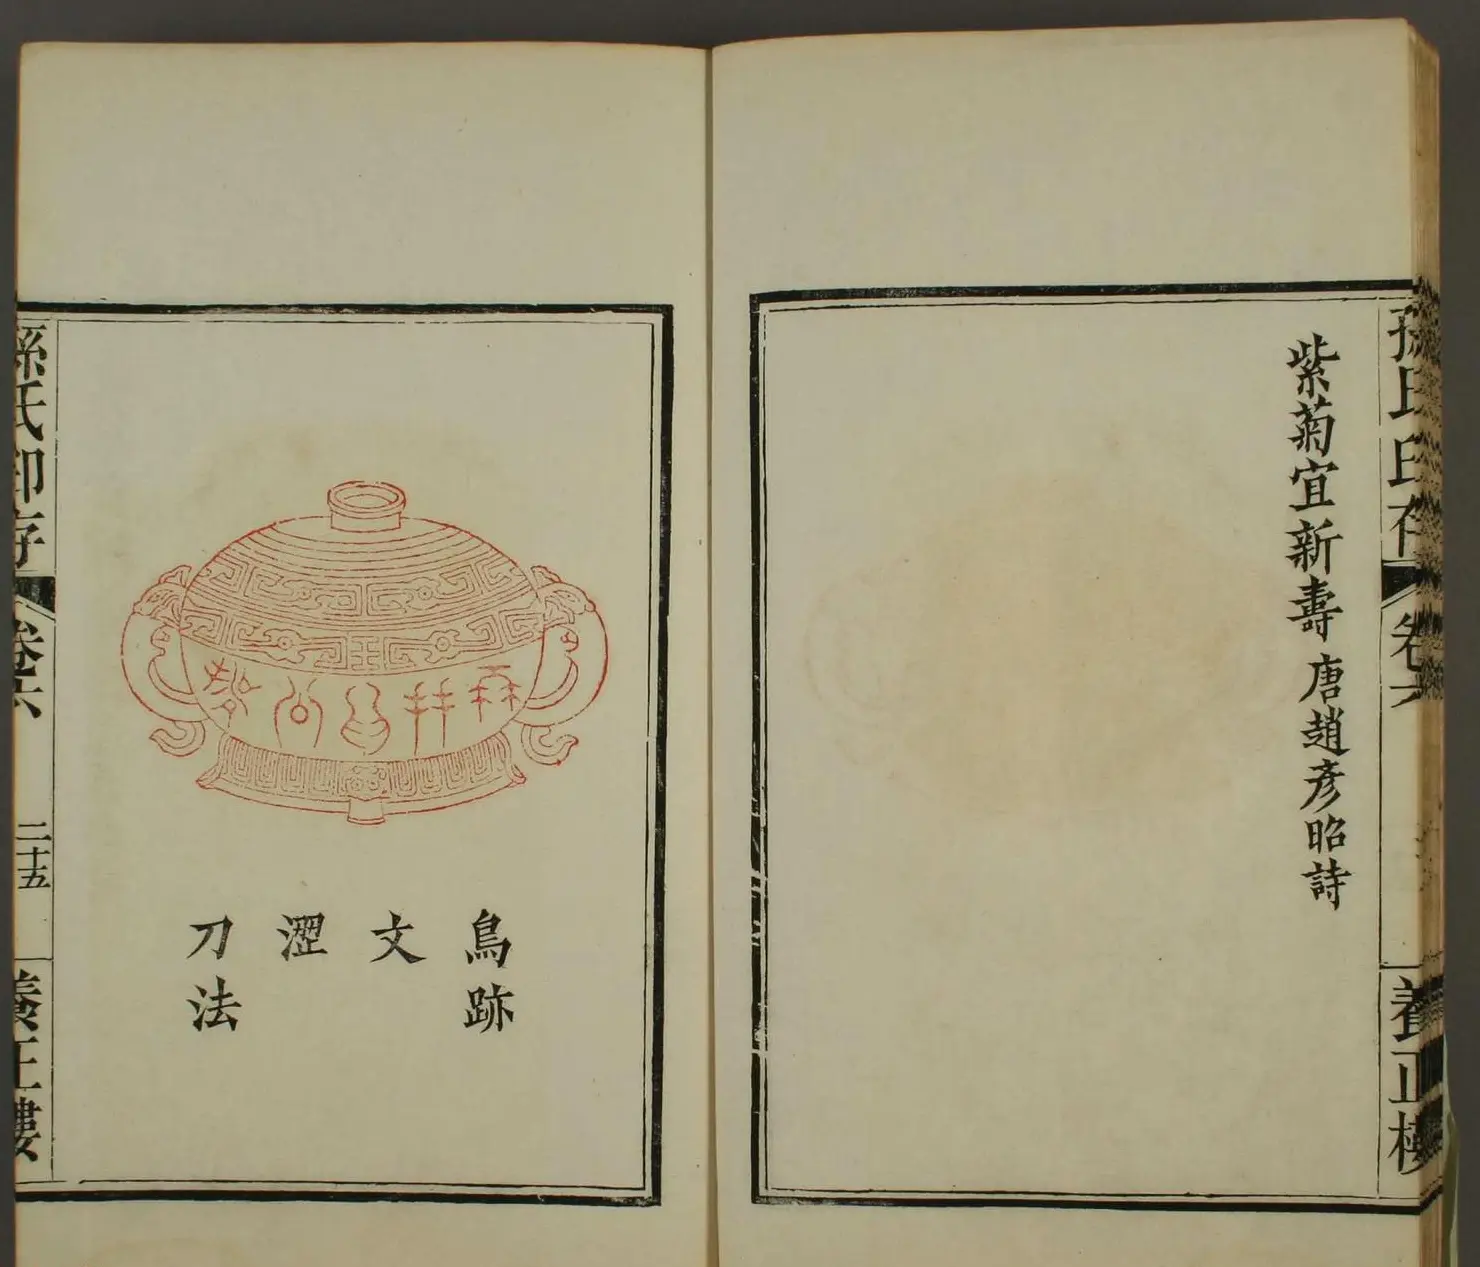 孫氏印存
卷六
養正樓
紫菊宜新壽 唐趙彥昭詩
鳥跡
文
澀
刀法
孫氏印存
卷六
二十五
養正樓